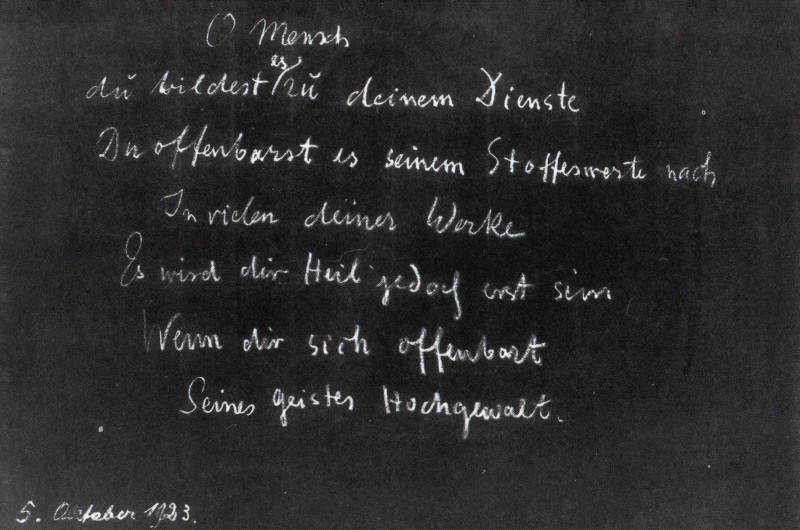 O Mensch
du bildest es zu deinem Dienste
Du offenbarst es seinem Stoffeswerte nach
In vielen deiner Werke
Es wird dir Heil jedoch erst sein,
Wenn dir sich offenbart
Seines Geistes Hochgewalt.
5. Oktober 1923.